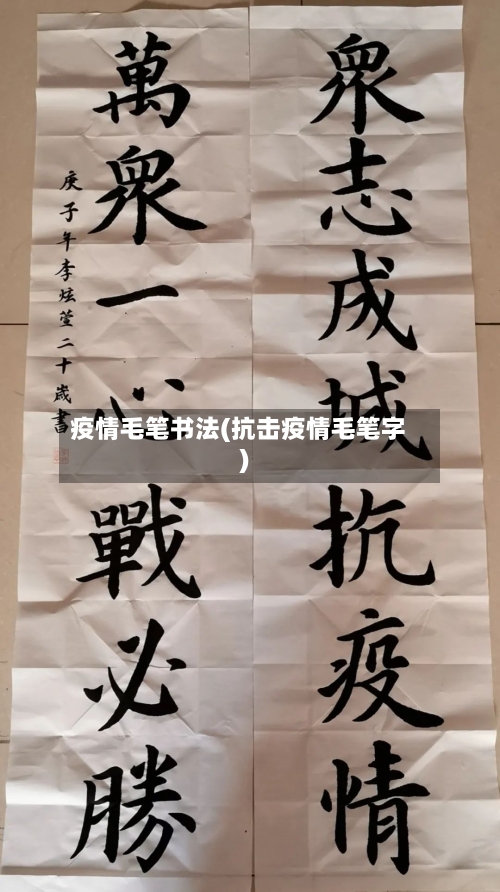 眾志成城抗疫情
萬眾一心戰必勝
庚子年李炫萱二十歲書
疫情毛笔书法(抗击疫情毛笔字
)